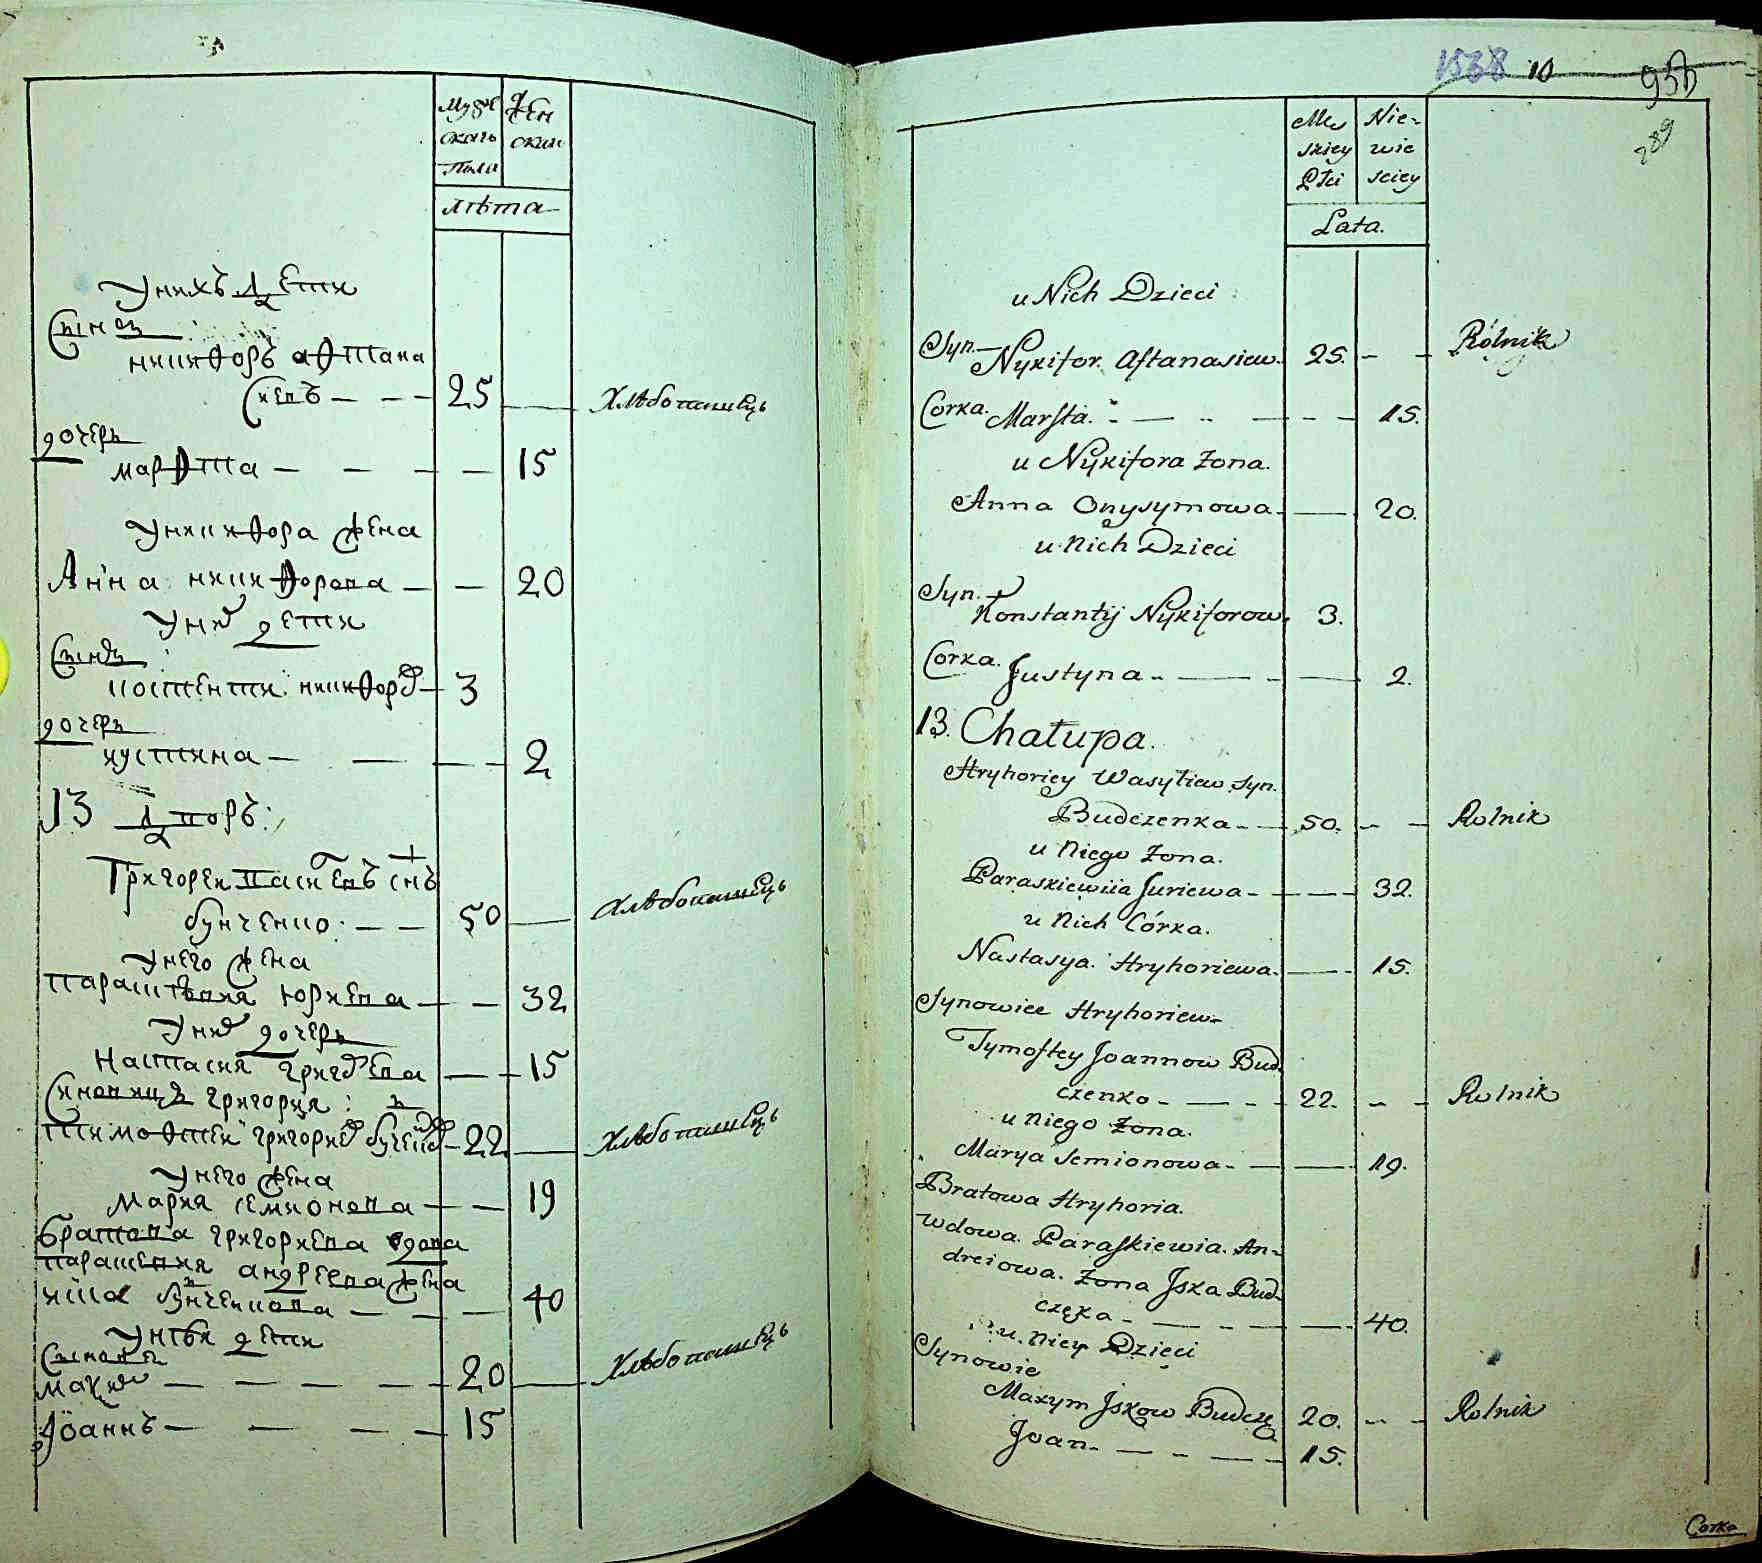 Мужескаго пола
Женскии
лѣта
Унихъ Дети
Сынъ
никифоръ афтана
сиевъ — — — 25 — Хлѣбопашецъ
дочеръ
марфта — — — — 15
Уникифора жена
Анна никифорова — — 20
Уних дети
Сынъ
костенти никифоров — 3
дочеръ
иустина — — — — 2
13 Дворъ:
Григореи Васиевъ снъ
бунченко: — — 50 — Хлѣбопашецъ
Унего жена
парасковия юриева — — 32
Уних дочеръ
Настасия григорева — — 15
Синовицъ григория:
тимофтеи григориев — 22 — Хлѣбопашецъ
Унего жена
Мария семионова — — 19
братова григориева вдова
парасевия андреева жена
бунченкова — — — 40
Унеѣи дети
Сынове
Максим — — — — 20 — Хлѣбопашецъ
Іоаннъ — — — — 15
1538 10 95
289
Me skiey Płci
Nie- wie sciey
Lata.
u Nich Dzieci
Syn. Nykifor Aftanasiew. 25. - - Rólnik
Corka. Marfta. - — - — - 15.
u Nykifora Zona.
Anna Onysymowa. — 20.
u Nich Dzieci
Syn.
Konstantij Nykiforow. 3.
Corka. Justyna - — - — 2.
13. Chałupa.
Hryhoriey Wasyliew Syn.
Budczenka - — 50. - - Rolnik
u Niego Zona.
Paraskiewiia Juriewa - — 32.
u Nich Córka.
Nastasya Hryhoriewa. — 15.
Synowiec Hryhoriew.
Tymoftey Joannow Bud-
czenko - — - - 22. - - Rolnik
u Niego Zona.
Marya Semionowa - — — 19.
Bratowa Hryhoria.
wdowa. Paraskiewia. An-
dreiowa. Zona Jska Bud-
częka - — - — — 40.
u. Niey Dzieci
Synowie
Maxym Jskow Budczę 20. - - Rolnik
Joan - — - - — 15.
Corka